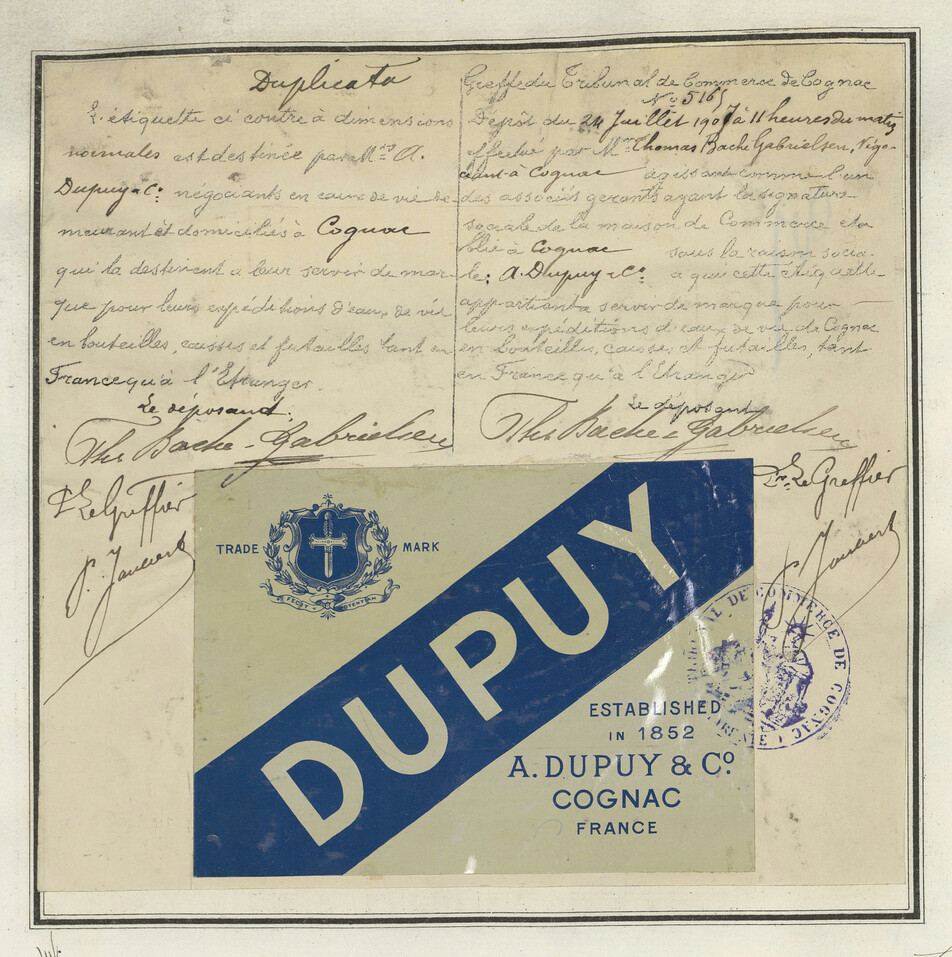 Duplicata
L'étiquette ci contre à dimensions
normales est destinée par Mrs A.
Dupuy & Co. négociants en eaux de vie de-
meurant et domiciliés à Cognac
qui la destinent a leur servir de mar-
que pour leurs expéditions d'eaux de vie
en bouteilles, caisses et futailles tant en
France qu'à l'Etranger
Le déposant.
Ths Bache-Gabrielsen
Pr Le Greffier
Greffe du Tribunal de Commerce de Cognac
No 516
Dépôt du 24 Juillet 1907 à 11 heures du matin
effectué par Mr Thomas Bache Gabrielsen, Négo-
ciant à Cognac agissant comme l'un
des associés gerants ayant la signature
sociale de la maison de Commerce éta
blie à Cognac sous la raison socia-
le: A. Dupuy & Co. a que cette étiquette
appartient a servir de marque pour
leurs expéditions d'eaux de vie de Cognac
en bouteilles, caisses et futailles, tant
en France qu'à l'Etranger
Le déposant
Ths Bache-Gabrielsen
Pr. Le Greffier
TRADE MARK
DUPUY
ESTABLISHED
IN 1852
A. DUPUY & Co.
COGNAC
FRANCE
TRIBUNAL DE COMMERCE DE COGNAC